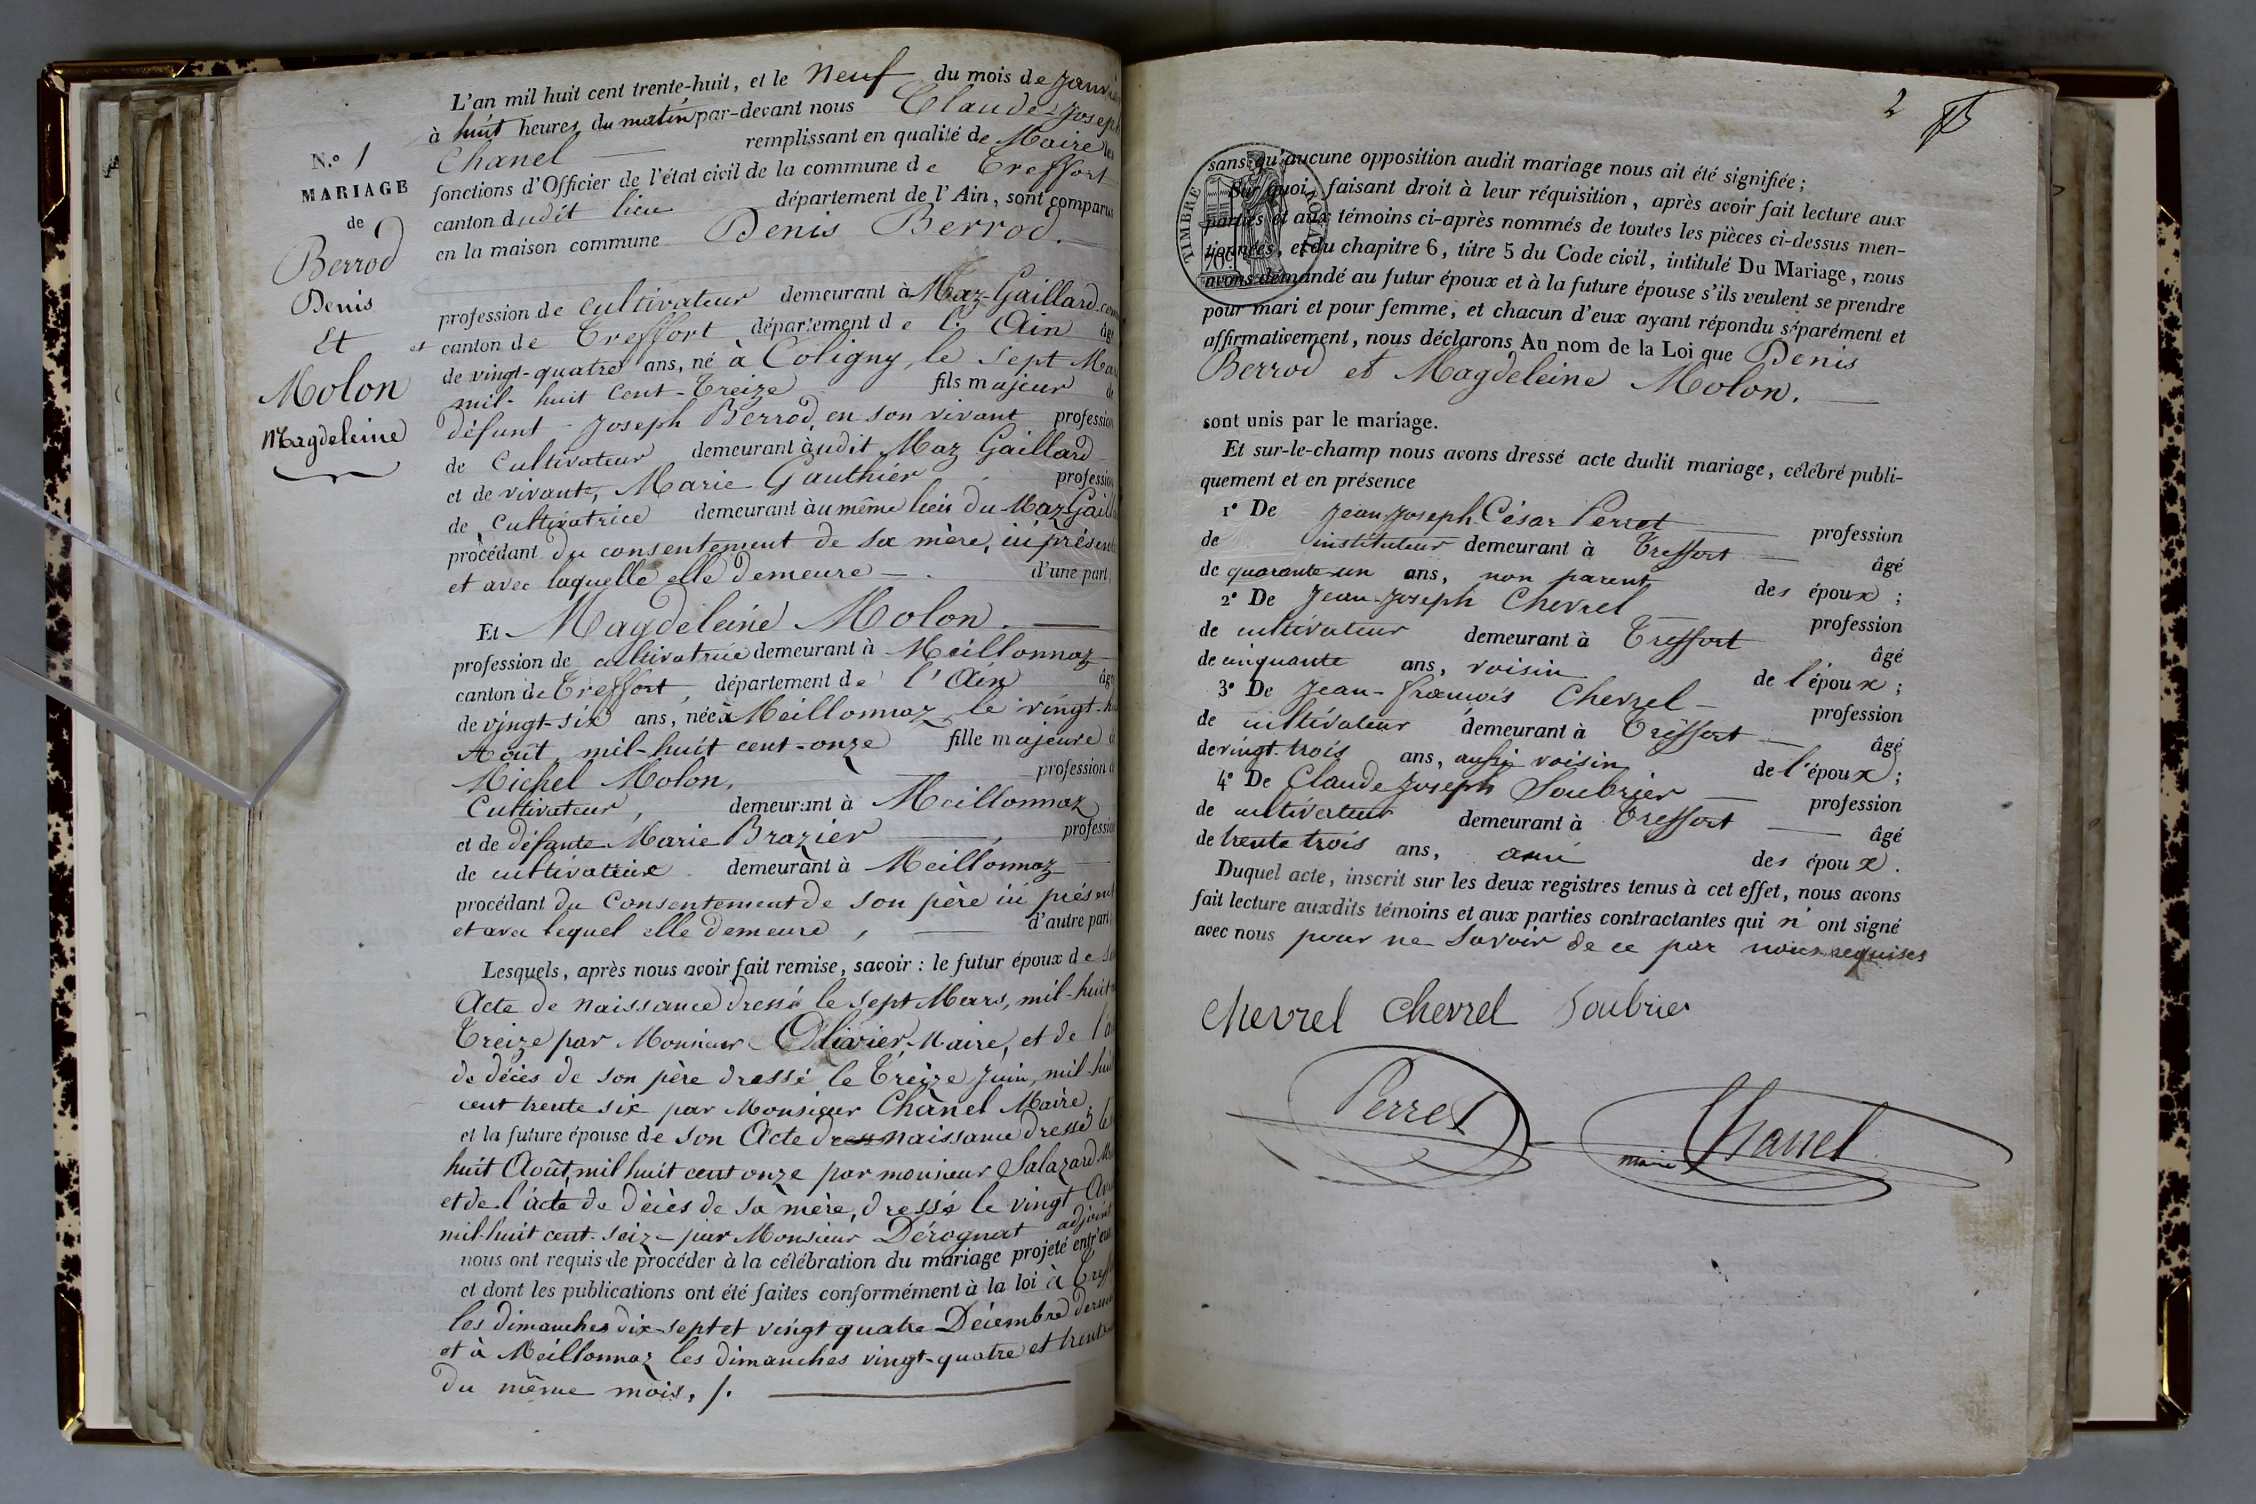 L'an mil huit cent trente-huit, et le Neuf du mois de Janvier
à huit heures du matin par-devant nous Claude-Joseph
Chanel remplissant en qualité de Maire les
fonctions d'Officier de l'état civil de la commune de Treffort
canton dudit lieu département de l'Ain, sont comparus
en la maison commune Denis Berrod.
N.° 1
MARIAGE
de
Berrod
Denis
Et
Molon
Magdeleine
profession de cultivateur demeurant à Maz-Gaillard
canton de Treffort département de l'Ain âgé
de vingt-quatre ans, né à Coligny, le sept Mars
mil-huit cent-Treize fils majeur de
défunt Joseph Berrod, en son vivant profession
de Cultivateur demeurant audit Maz Gaillard
et de vivante, Marie Gauthier profession
de Cultivatrice demeurant au même lieu du Maz-Gaill
procédant du consentement de sa mère, ici présente
et avec laquelle elle demeure d'une part;
Et Magdeleine Molon.
profession de cultivatrice demeurant à Meillonnaz
canton de Treffort, département de l'Ain âg
de vingt-six ans, née à Meillonnaz, le vingt-h
Août mil-huit cent-onze fille majeure d
Michel Molon, profession d
Cultivateur, demeurant à Meillonnaz
et de défunte Marie Brazier, profession
de cultivatrice demeurant à Meillonnaz
procédant du Consentement de son père ici présent
et avec lequel elle demeure, d'autre part;
Lesquels, après nous avoir fait remise, savoir: le futur époux de so
Acte de naissance dressé le sept Mars, mil-huit
Treize par Monsieur Olivier Maire, et de l'a
de décès de son père dressé le Treize Juin, mil-hui
cent trente six par Monsieur Chanel Maire,
et la future épouse de son Acte de naissance dressé le
huit Août, mil huit cent onze par monsieur Salazard M
et de l'acte de décès de sa mère, dressé le vingt Av
mil-huit cent-seize par Monsieur Dérognat adjoint
nous ont requis de procéder à la célébration du mariage projeté entr'eux
et dont les publications ont été faites conformément à la loi à Treff
les dimanches dix-sept et vingt quatre Décembre dernier
et à Meillonnaz les dimanches vingt-quatre et trente
du même mois, /.
2
TIMBRE ROYAL
sans qu'aucune opposition audit mariage nous ait été signifiée;
Sur quoi, faisant droit à leur réquisition, après avoir fait lecture aux
parties et aux témoins ci-après nommés de toutes les pièces ci-dessus men-
tionnées, et du chapitre 6, titre 5 du Code civil, intitulé Du Mariage, nous
avons demandé au futur époux et à la future épouse s'ils veulent se prendre
pour mari et pour femme, et chacun d'eux ayant répondu séparément et
affirmativement, nous déclarons Au nom de la Loi que Denis
Berrod et Magdeleine Molon.
sont unis par le mariage.
Et sur-le-champ nous avons dressé acte dudit mariage, célébré publi-
quement et en présence
1° De Jean-Joseph-César Perret profession
de instituteur demeurant à Treffort âgé
de quarante-un ans, non parent des époux;
2° De Jean-Joseph Chevrel profession
de cultivateur demeurant à Treffort âgé
de cinquante ans, voisin de l'époux;
3° De Jean-françois Chevrel profession
de cultivateur demeurant à Treffort âgé
de vingt-trois ans, aussi voisin de l'époux;
4° De Claude Joseph Soubrier profession
de cultivateur demeurant à Treffort âgé
de trente trois ans, ami des époux.
Duquel acte, inscrit sur les deux registres tenus à cet effet, nous avons
fait lecture auxdits témoins et aux parties contractantes qui n'ont signé
avec nous pour ne savoir de ce par nous requises
Chevrel Chevrel Soubrier
Perret
maire Chanel